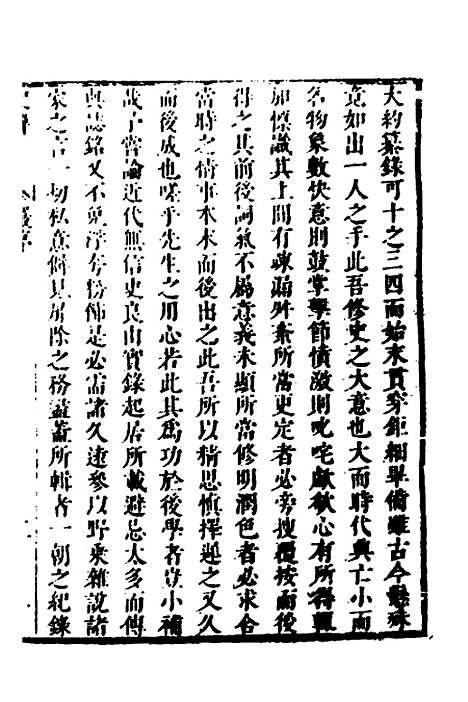 大約纂錄可十之三四而始末貫穿鉅細畢備雖古今懸殊
竟如出一人之手此吾修史之大意也大而時代興亡小而
名物象數快意則鼓掌擊節憤激則叱咤歔欷心有所得輒
加標識其上間有疎漏舛紊所當更定者必旁搜覆按而後
得之其前後詞氣不屬意義未顯所當修明潤色者必求合
當時之情事本末而後出之此吾所以精思慎擇遲之又久
而後成也嗟乎先生之用心若此其為功於後學者豈小補
哉予嘗論近代無信史良由實錄起居所載避忌太多而傳
與誌銘又不免浮夸粉飾是必需諸久遠參以野乘雜說諸
家之言一切私意偏見屏除之務盡蓋所輯者一朝之紀錄